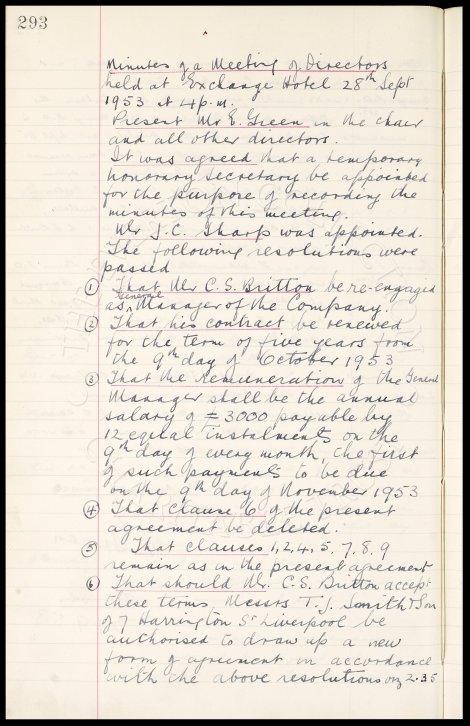 293
Minutes of a Meeting of Directors
held at Exchange Hotel 28th Sept
1953 at 4 p.m.
Present Mr E. Green in the chair
and all other directors.
It was agreed that a temporary
honorary Secretary be appointed
for the purpose of recording the
minutes of this meeting.
Mr J.C. Sharp was appointed.
The following resolutions were
passed
① That Mr C.S. Britton be re-engaged
as General Manager of the Company.
② That his contract be renewed
for the term of five years from
the 9th day of October 1953
③ That the Remuneration of the General
Manager shall be the annual
salary of £3000 payable by
12 equal instalments on the
9th day of every month, the first
of such payments to be due
on the 9th day of November 1953
④ That clause 6 of the present
agreement be deleted.
⑤ That clauses 1, 2, 4, 5. 7. 8. 9
remain as in the present agreement
⑥ That should Mr. C.S. Britton accept
these terms, Messrs T.J. Smith & Son
of 7 Harrington St Liverpool be
authorised to draw up a new
form of agreement in accordance
with the above resolutions viz 2.3.5